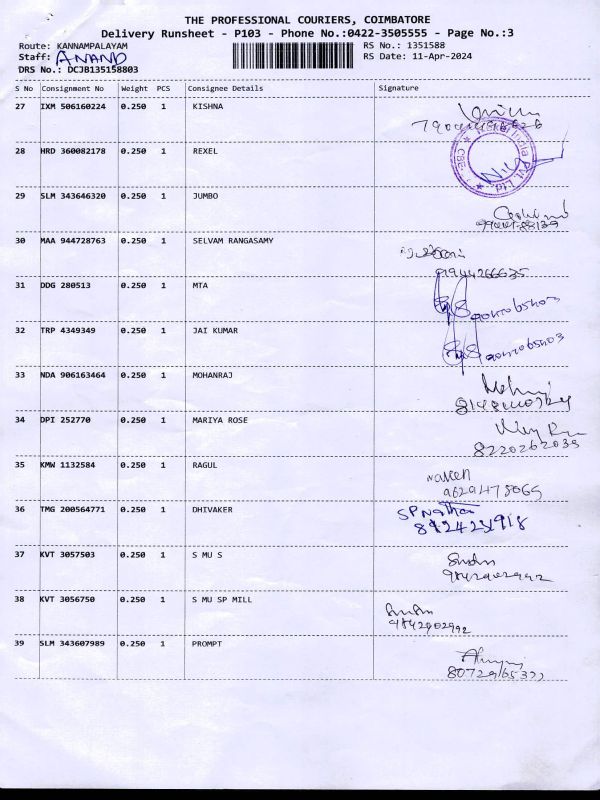 THE PROFESSIONAL COURIERS, COIMBATORE
Delivery Runsheet - P103 - Phone No.:0422-3505555 - Page No.:3
Route: KANNAMPALAYAM RS No.: 1351588
Staff: ANAND RS Date: 11-Apr-2024
DRS No.: DCJB135158803
S No Consignment No Weight PCS Consignee Details Signature
27 IXM 506160224 0.250 1 KISHNA
28 HRD 360082178 0.250 1 REXEL
India Pvt. Ltd. CBE.
29 SLM 343646320 0.250 1 JUMBO
30 MAA 944728763 0.250 1 SELVAM RANGASAMY
31 DDG 280513 0.250 1 MTA
32 TRP 4349349 0.250 1 JAI KUMAR
33 NDA 906163464 0.250 1 MOHANRAJ
34 DPI 252770 0.250 1 MARIYA ROSE
8220262039
35 KMW 1132584 0.250 1 RAGUL
36 TMG 200564771 0.250 1 DHIVAKER
SP Nathan
37 KVT 3057503 0.250 1 S MU S
9842902992
38 KVT 3056750 0.250 1 S MU SP MILL
9842902992
39 SLM 343607989 0.250 1 PROMPT